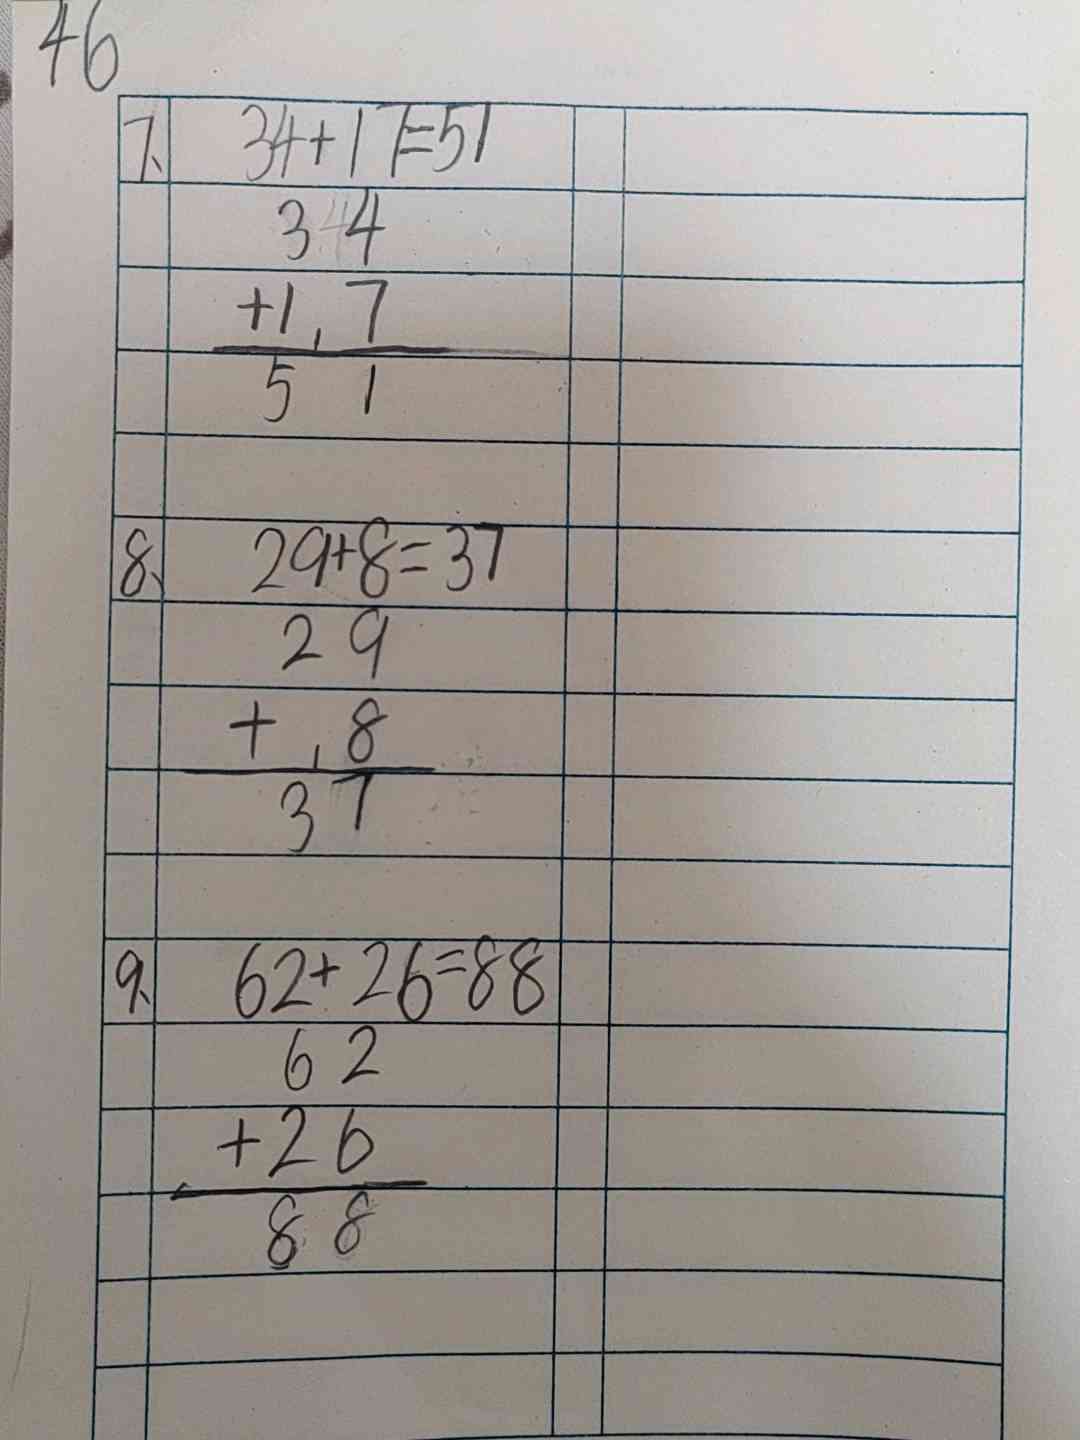 46
7. 34+17=51
34
+1,7
51
8. 29+8=37
29
+ ,8
37
9. 62+26=88
62
+26
88